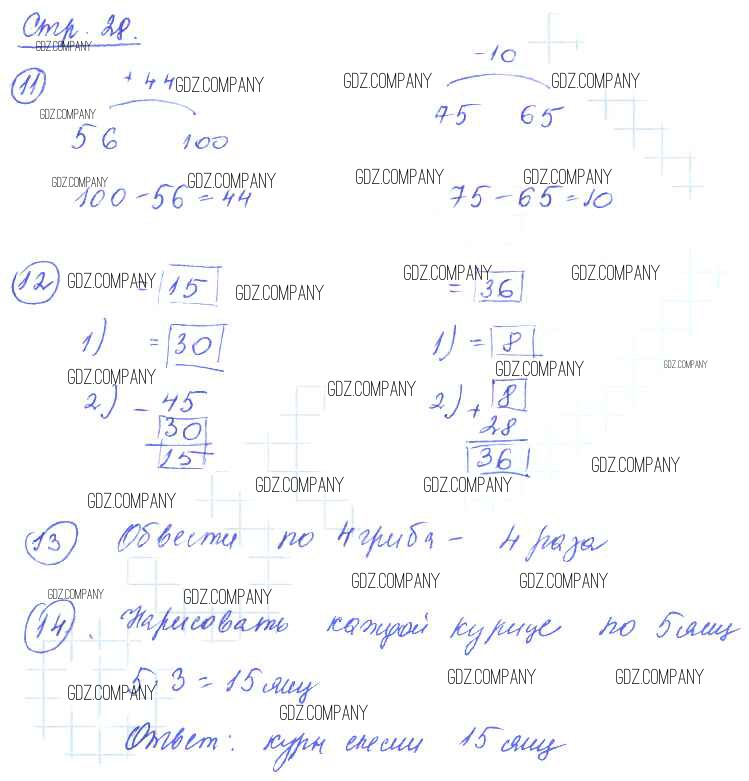 Стр. 28.
GDZ.COMPANY
11 +44 GDZ.COMPANY GDZ.COMPANY -10 GDZ.COMPANY
GDZ.COMPANY
56 100 75 65
GDZ.COMPANY GDZ.COMPANY GDZ.COMPANY GDZ.COMPANY
100-56=44 75-65=10
12 GDZ.COMPANY = 15 GDZ.COMPANY GDZ.COMPANY = 36 GDZ.COMPANY
1) = 30 1) = 8
GDZ.COMPANY GDZ.COMPANY GDZ.COMPANY
2) - 45 GDZ.COMPANY 2) + 8
30 28
15 36 GDZ.COMPANY
GDZ.COMPANY GDZ.COMPANY GDZ.COMPANY
13 Обвести по 4 гриба - 4 раза
GDZ.COMPANY GDZ.COMPANY GDZ.COMPANY GDZ.COMPANY
14. Нарисовать каждой курице по 5 яиц
5·3=15 яиц
GDZ.COMPANY GDZ.COMPANY GDZ.COMPANY
GDZ.COMPANY
Ответ: куры снесли 15 яиц